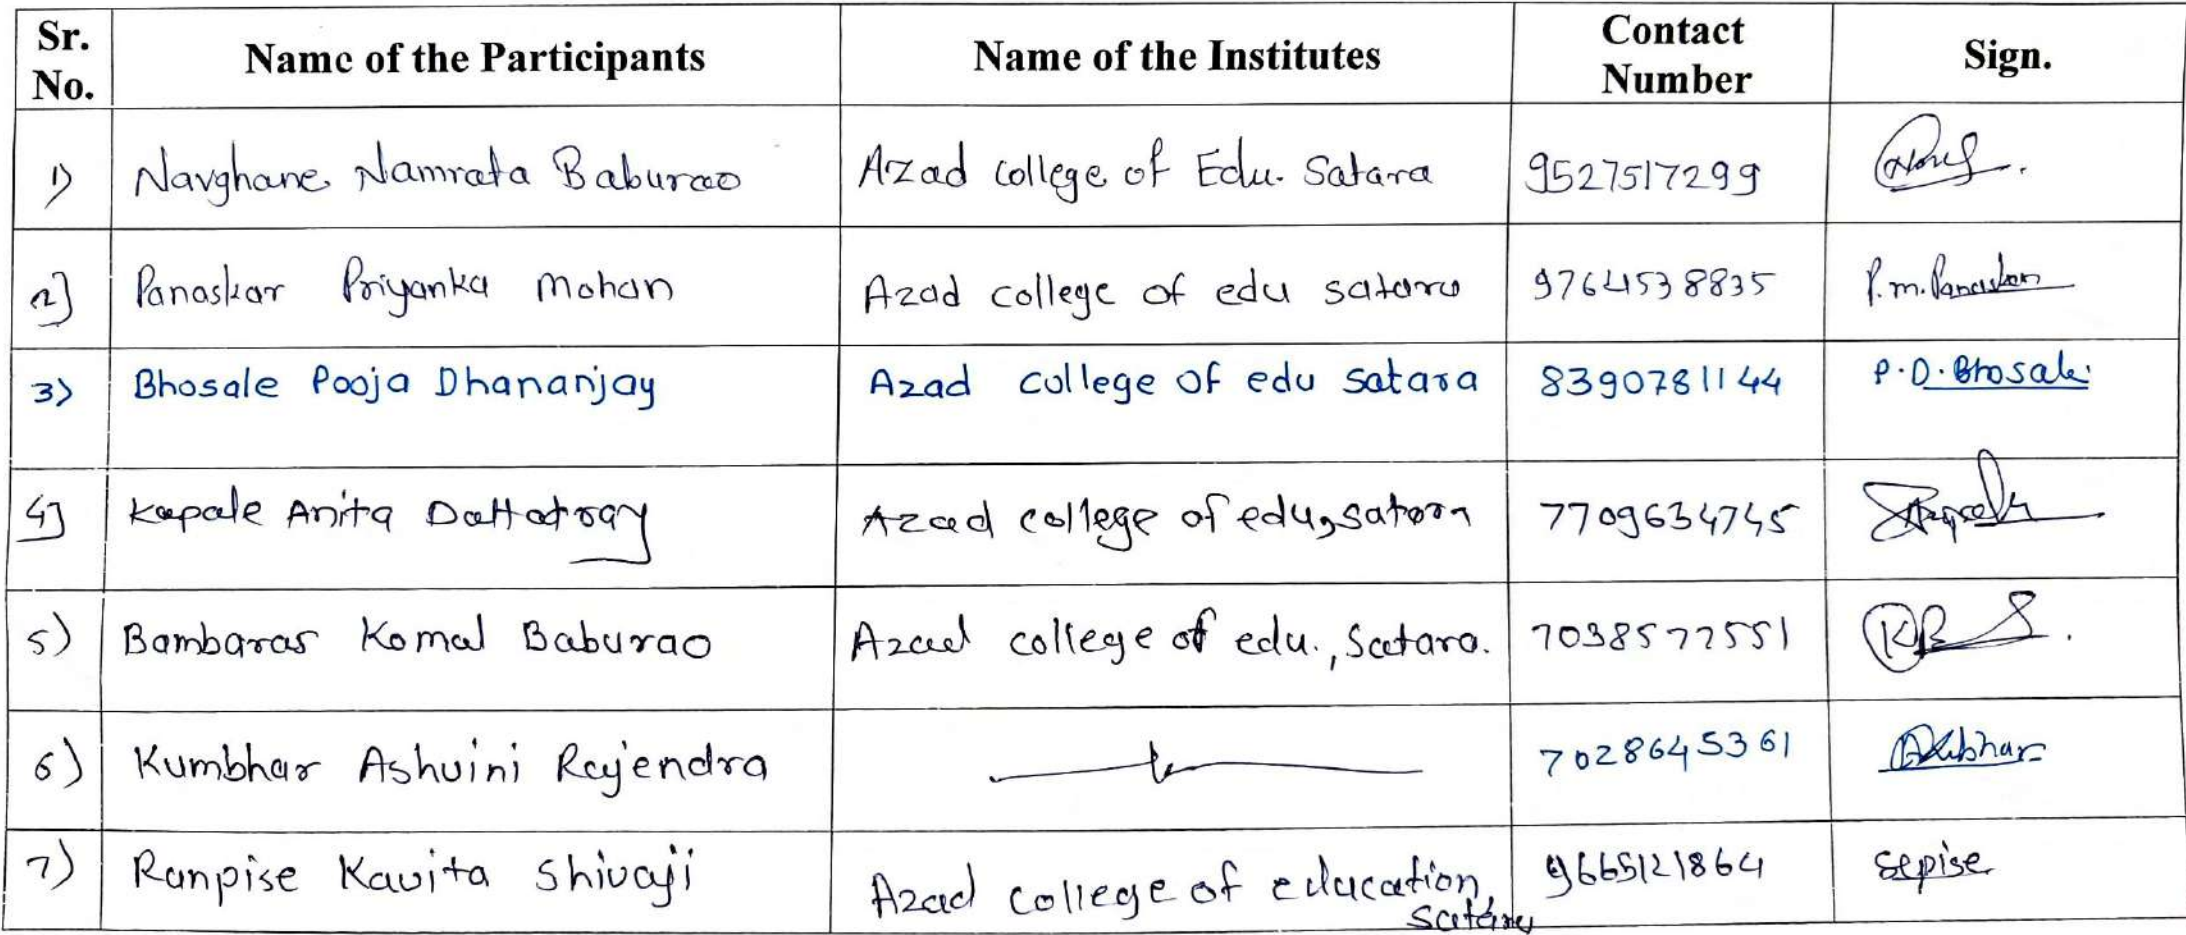 Sr. No. Name of the Participants Name of the Institutes Contact Number Sign.
1) Navghane Namrata Baburao Azad college of Edu. Satara 9527517299
2] Panaskar Priyanka Mohan Azad college of edu satara 9764538835 P.m.Panaskar
3) Bhosale Pooja Dhananjay Azad college of edu satara 8390781144 P.D.Bhosale
4] Kapale Anita Dattatray Azad college of edu, satara 7709634745
5) Bambaras Komal Baburao Azad college of edu., Satara. 7038577551
6) Kumbhar Ashwini Rajendra 7028645361
7) Ranpise Kavita Shivaji Azad college of education, satara 9665121864